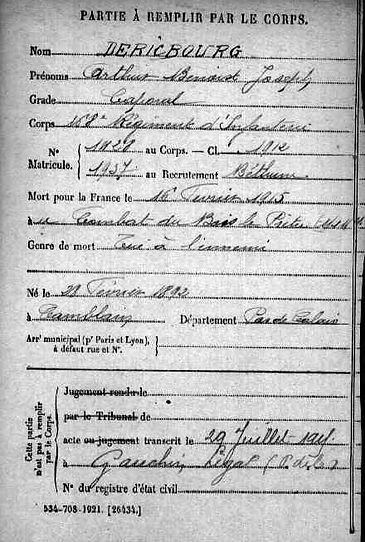 PARTIE À REMPLIR PAR LE CORPS.
Nom DERICBOURG
Prénoms Arthur Benoist Joseph
Grade Caporal
Corps 168e Régiment d'Infanterie
N° 1929 au Corps. — Cl. 1912
Matricule. 1937 au Recrutement Béthune
Mort pour la France le 16 Février 1915
à Combat du Bois le Prêtre
Genre de mort tué à l'ennemi
Né le 28 Février 1892
à Département Pas de Calais
Arrt municipal (pr Paris et Lyon),
à défaut rue et N°.
Cette partie n'est pas à remplir par le Corps.
Jugement rendu le
par le Tribunal de
acte ou jugement transcrit le 29 Juillet
à Gauchin Légal (P. de C.)
N° du registre d'état civil
534-708-1921. [26434.]